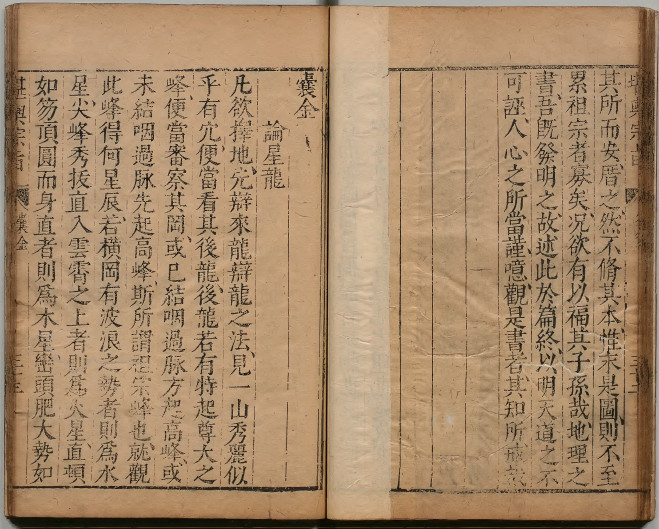 其所而安厝之然不脩其本惟末是圖則不至
累祖宗者寡矣況欲有以福其子孫哉地理之
書吾既發明之故述此於篇終以明天道之不
可誣人心之所當謹噫觀是書者其知所戒哉
囊金
論星龍
凡欲擇地先辯來龍辯龍之法見一山秀麗似
乎有穴便當看其後龍後龍若有特起尊大之
峰便當審察其岡或已結咽過脉方起高峰或
未結咽過脉先起高峰斯所謂祖宗峰也就觀
此峰得何星辰若橫岡有波浪之勢者則爲水
星尖峰秀拔直入雲霄之上者則爲火星直頓
如笏頂圓而身直者則爲木星巒頭肥大勢如
堪輿宗旨 囊金